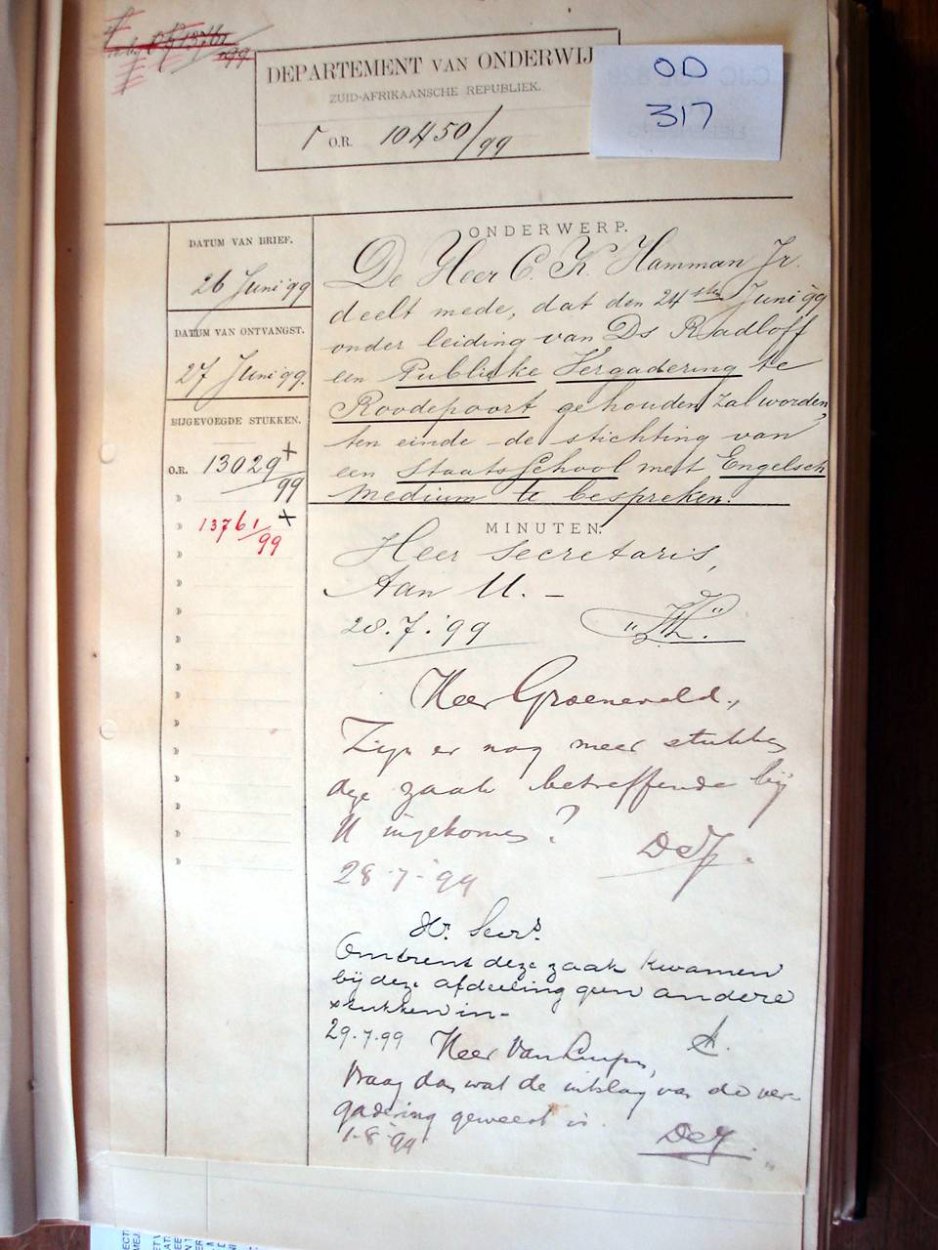 13761
99
DEPARTEMENT VAN ONDERWIJ
ZUID-AFRIKAANSCHE REPUBLIEK.
O.R. 10450/99
OD
317
DATUM VAN BRIEF.
26 Juni 99
DATUM VAN ONTVANGST.
27 Juni '99.
BIJGEVOEGDE STUKKEN.
O.R. 13029/99 +
13761/99 +
ONDERWERP.
De Heer C. K. Hamman Jr.
deelt mede, dat den 24sten Juni '99
onder leiding van Ds Radloff
een Publieke Vergadering te
Roodepoort gehouden zal worden,
ten einde de stichting van
een StaatsSchool met Engelsch
Medium te bespreken.
MINUTEN.
Heer Secretaris,
Aan U. —
28.7.'99
Heer Groeneveld.,
Zijn er nog meer stukken
deze zaak betreffende bij
U ingekomen?
DeJ.
28-7-'99
Hr. Secrs.
Omtrent deze zaak kwamen
bij deze afdeeling geen andere
stukken in-
29.7.99
Heer Van
Vraag dan wat de uitslag van de ver-
gadering geweest is.
1-8-'99
DeJ.